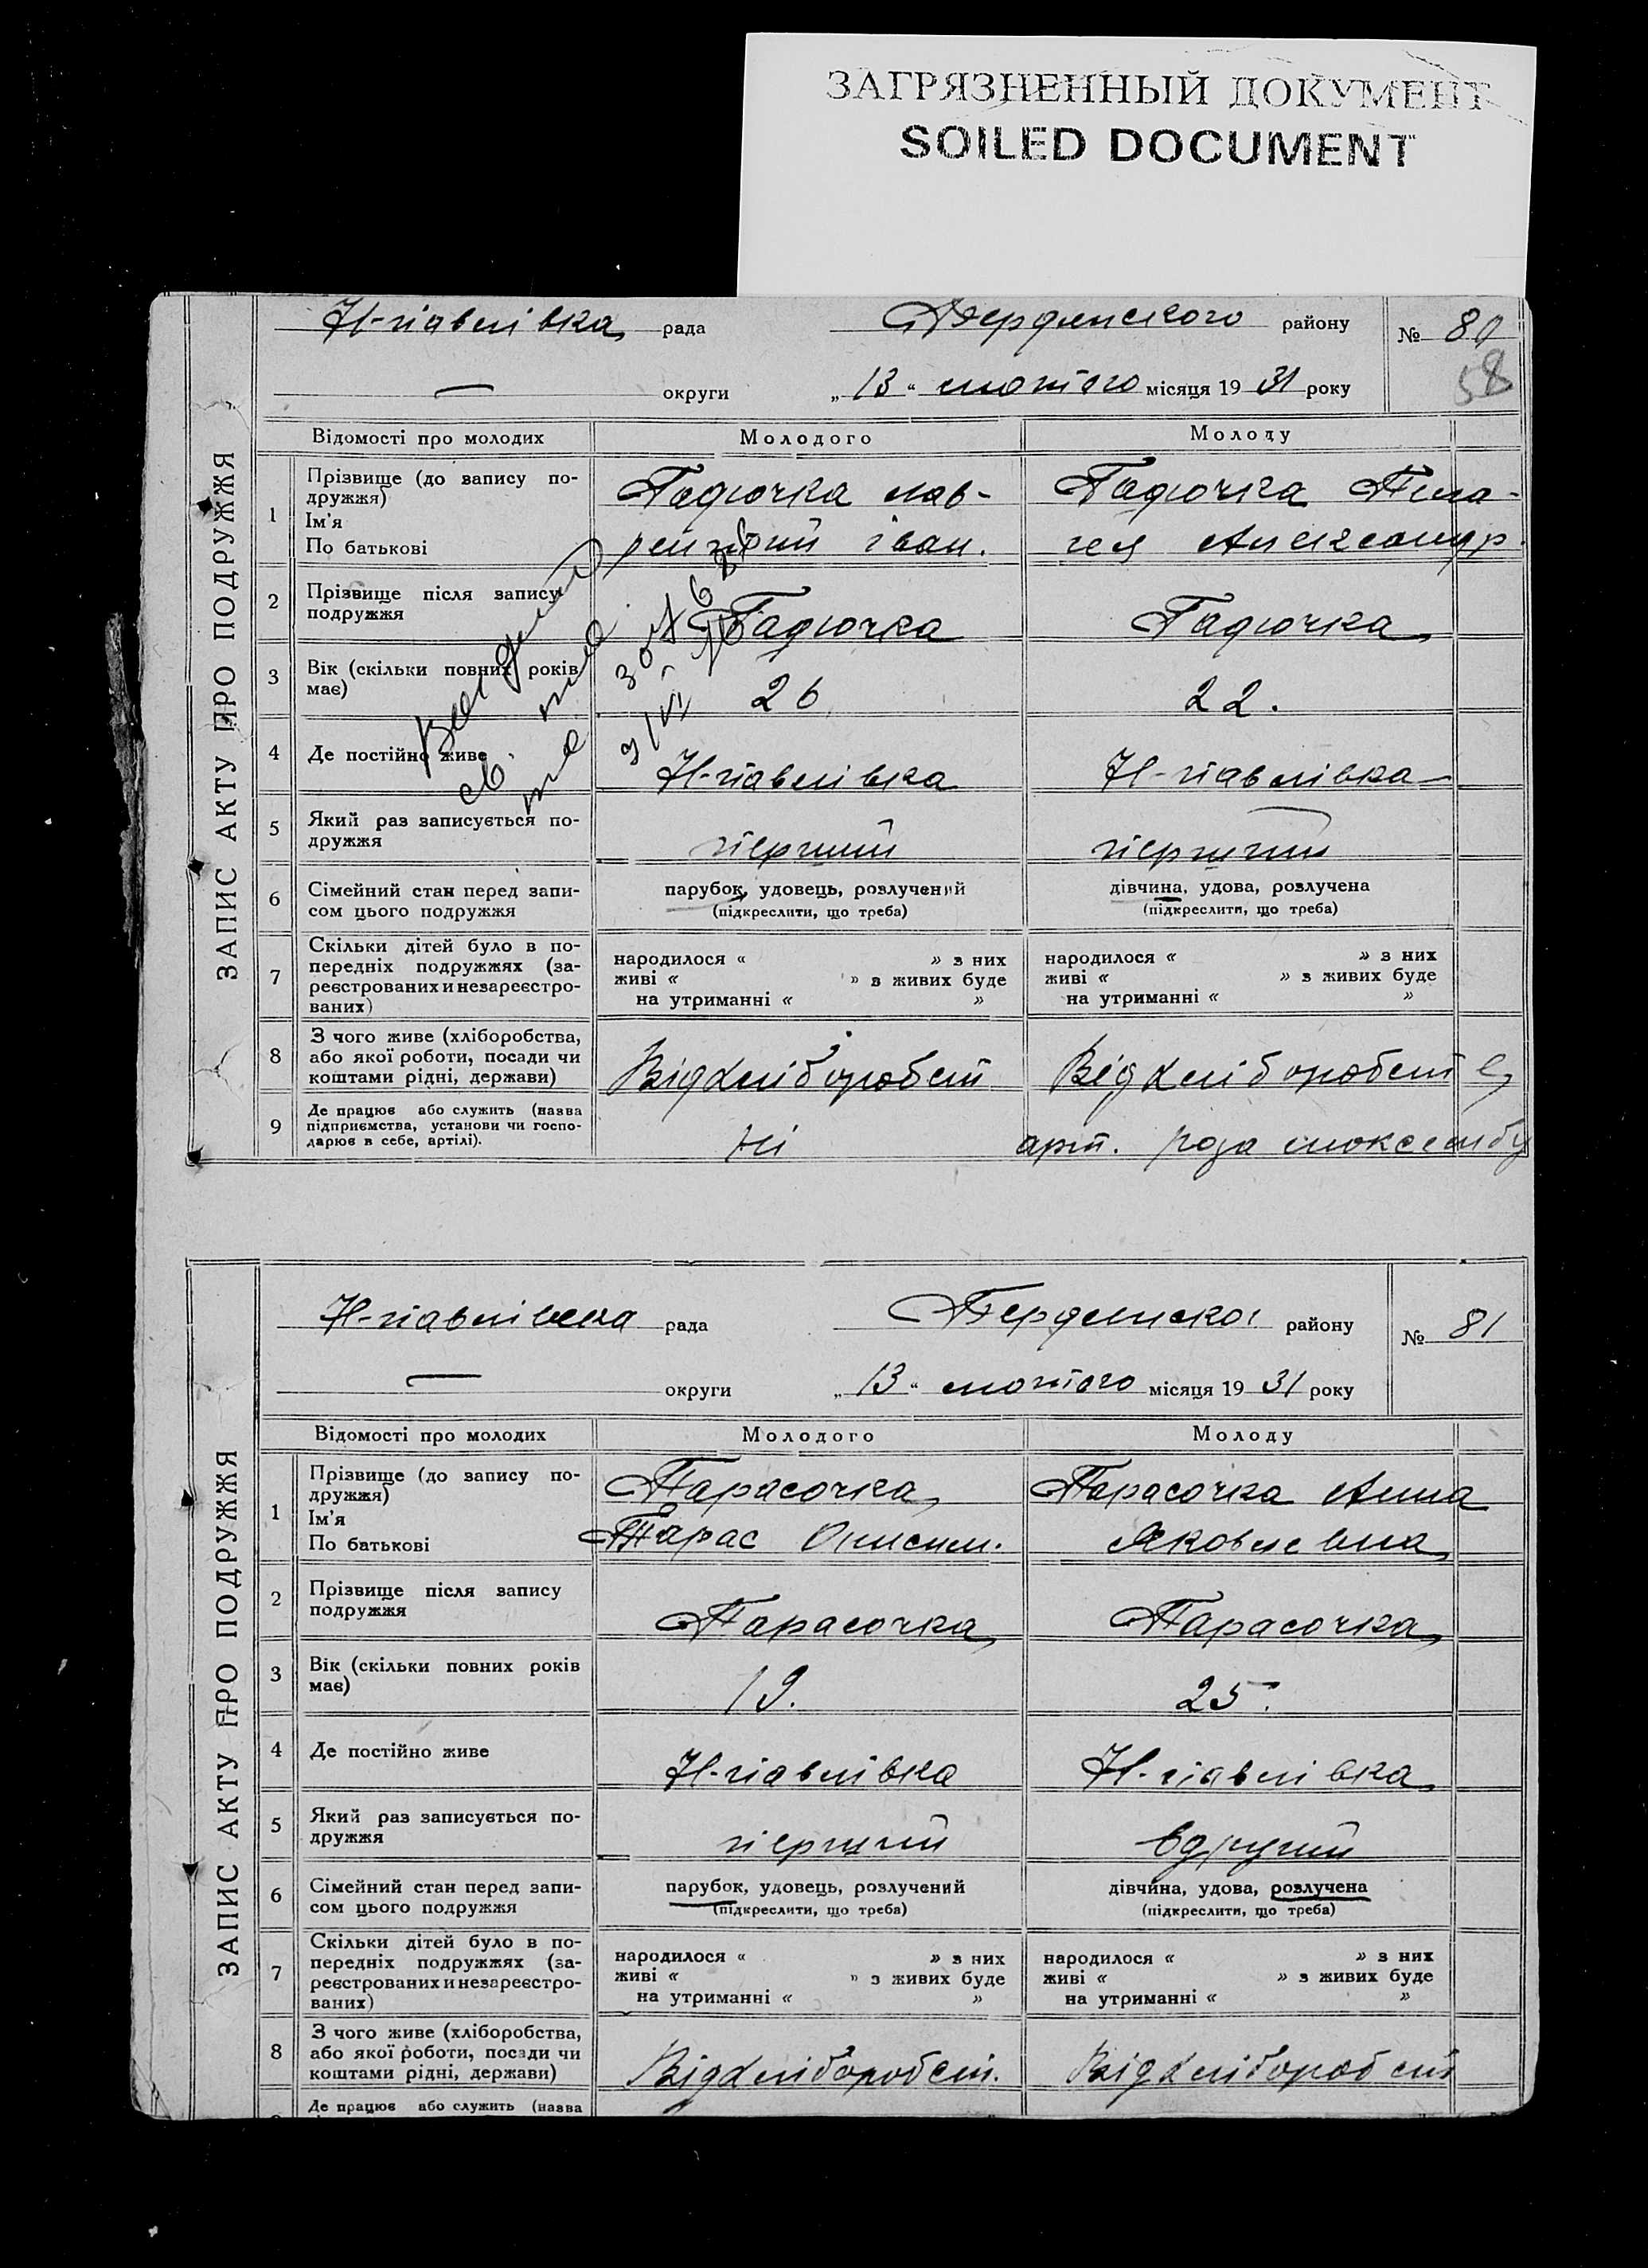 ЗАГРЯЗНЕННЫЙ ДОКУМЕНТ
SOILED DOCUMENT
Н-павлівка рада Бердянского района № 80
58
— округи „13“ лютого місяця 1931 року
ЗАПИС АКТУ ПРО ПОДРУЖЖЯ
Відомості про молодих Молодого Молоду
1 Прізвище (до запису подружжя) Ім'я По батькові
Гадючка Лав-
рентий іван.
Гадючка Пела-
гея Александр.
2 Прізвище після запису подружжя Гадючка Гадючка
3 Вік (скільки повних років має) 26 22.
4 Де постійно живе Н-павлівка Н-павлівка
5 Який раз записується подружжя перший перший
6 Сімейний стан перед записом цього подружжя
парубок, удовець, розлучений
(підкреслити, що треба)
дівчина, удова, розлучена
(підкреслити, що треба)
7 Скільки дітей було в попередніх подружжях (зареєстрованих и незареєстрованих)
народилося « » з них
живі « » з живих буде
на утриманні « »
народилося « » з них
живі « » з живих буде
на утриманні « »
8 З чого живе (хліборобства, або якої роботи, посади чи коштами рідні, держави) Від хліборобст Від хліборобст
9 Де працює або служить (назва підприємства, установи чи господарює в себе, артілі). Ні арт. роза люксембу
Н-павлівка рада Бердянско району № 81
— округи „13“ лютого місяця 1931 року
ЗАПИС АКТУ ПРО ПОДРУЖЖЯ
Відомості про молодих Молодого Молоду
1 Прізвище (до запису подружжя) Ім'я По батькові
Тарасочка
Тарас Онисим.
Тарасочка Анна
Яковлевна
2 Прізвище після запису подружжя Тарасочка Тарасочка
3 Вік (скільки повних років має) 19. 25.
4 Де постійно живе Н-павлівка Н-павлівка
5 Який раз записується подружжя перший вдругий
6 Сімейний стан перед записом цього подружжя
парубок, удовець, розлучений
(підкреслити, що треба)
дівчина, удова, розлучена
(підкреслити, що треба)
7 Скільки дітей було в попередніх подружжях (зареєстрованих и незареєстрованих)
народилося « » з них
живі « » з живих буде
на утриманні « »
народилося « » з них
живі « » з живих буде
на утриманні « »
8 З чого живе (хліборобства, або якої роботи, посади чи коштами рідні, держави) Від хліборобст. Від хліборобст
Де працює або служить (назва